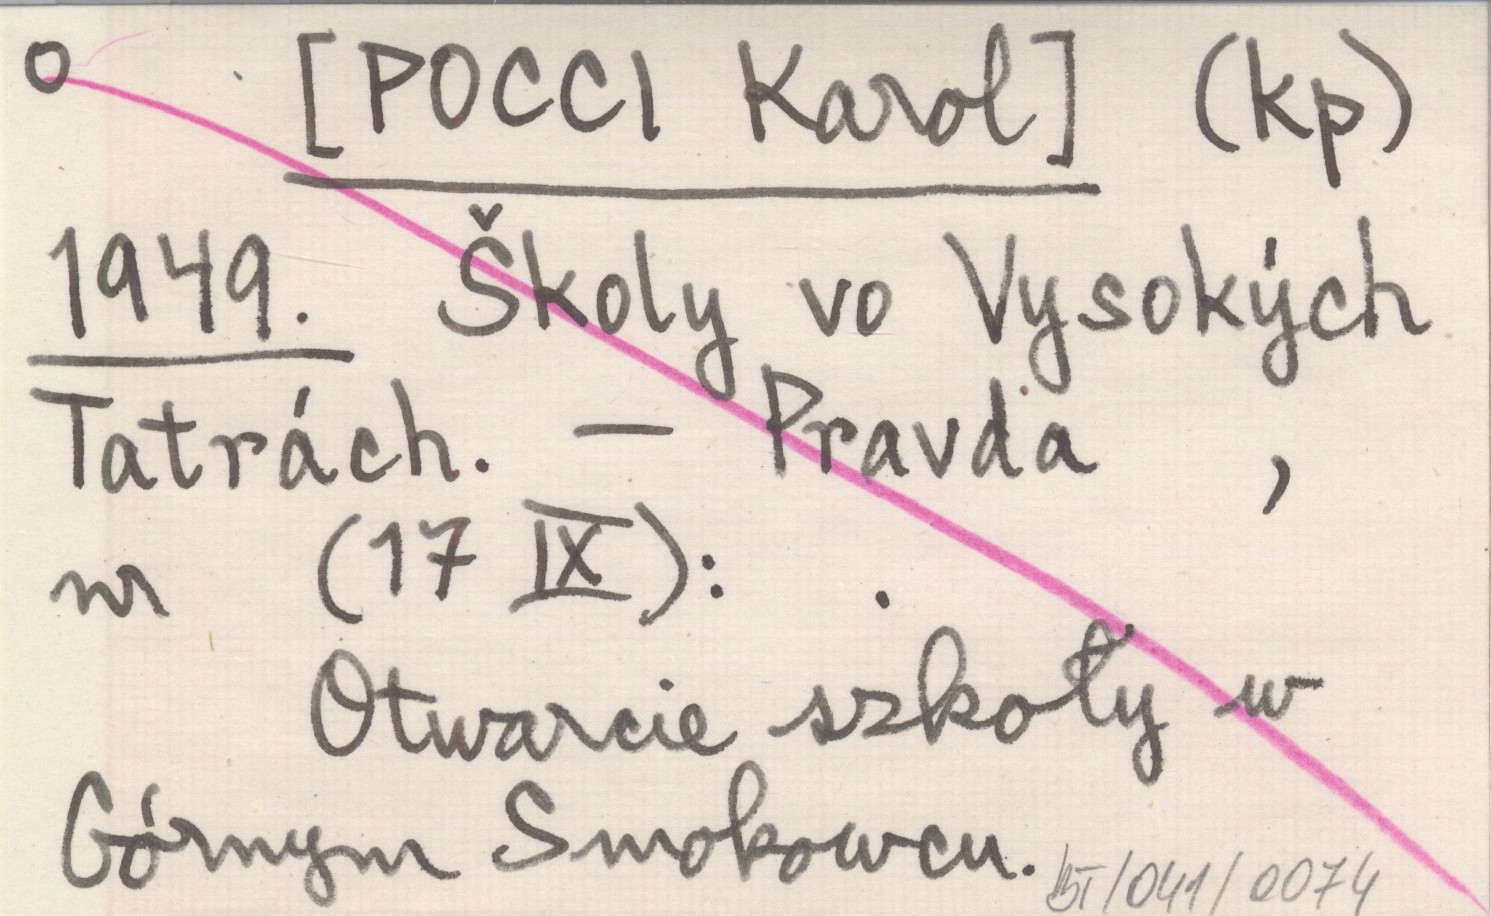 o [POCCI Karol] (kp)
1949. Školy vo Vysokých
Tatrách. — Pravda ,
nr (17 IX): .
Otwarcie szkoły w
Górnym Smokowcu.
BT/041/0074